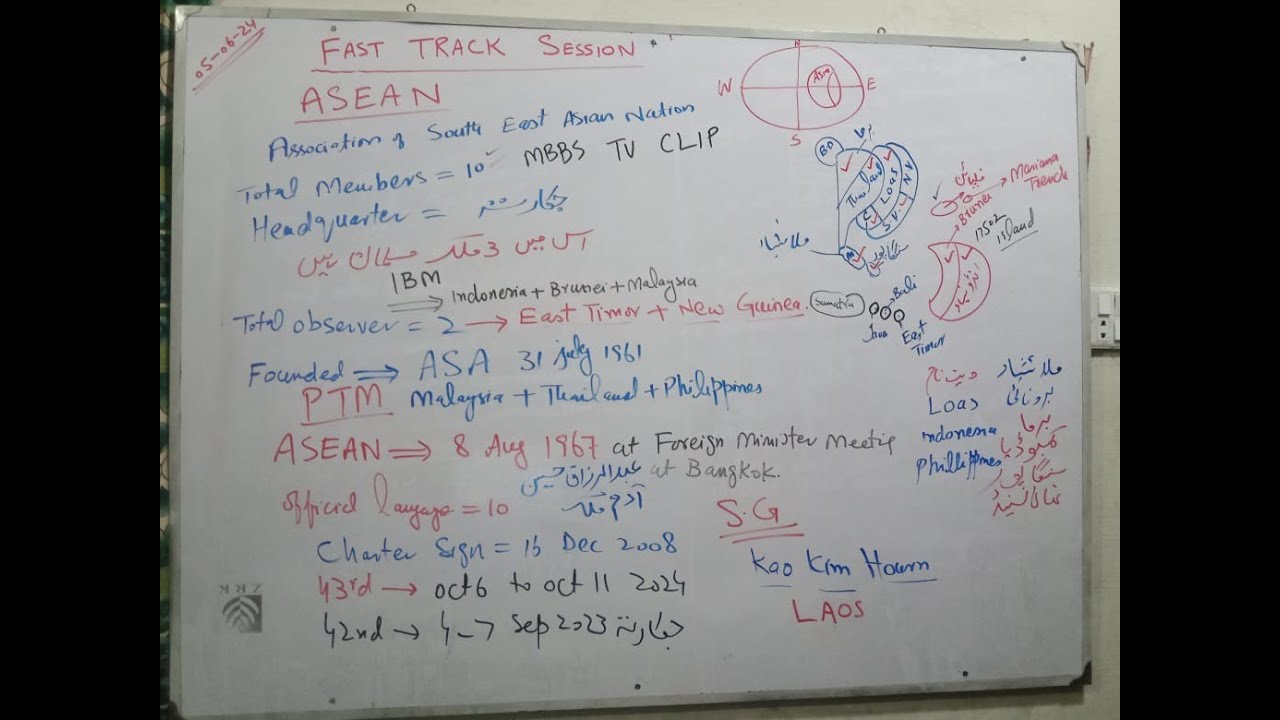 05-06-24
FAST TRACK SESSION
ASEAN
Association of South East Asian Nation
Total Members = 10 MBBS TV CLIP
Headquarter = جکارتہ
اس میں 3 ملک مسلمان ہیں
IBM
Indonesia + Brunei + Malaysia
Total observer = 2 → East Timor + New Guinea.
Founded ⇒ ASA 31 july 1961
PTM Malaysia + Thailand + Philippines
ASEAN ⇒ 8 Aug 1967 at Foreign Minister Meetig
at Bangkok.
عبدالرزاق حسین
آدم ملک
official langage = 10
Charter Sign = 15 Dec 2008
43rd → oct 6 to oct 11 2024
42nd → 4-7 Sep 2023 جکارتہ
S.G
Kao Kim Hourn
LAOS
N
W E
S
Asia
BD
Thailand
LOAS
N.V
C
S.V
M
ملائشیاء
سنگاپور
فلپائن
Mariana
Trench
Brunei
17502
island
انڈونیشیا
Sumatra
Bali
Java
East
Timor
ویت نام ملائشیاء
Loas برونائی
indonesia برما
Phillippines کمبوڈیا
سنگاپور
تھائی لینڈ
ZRK